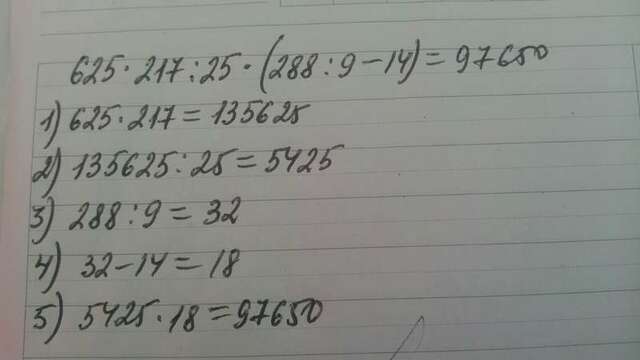 625·217:25·(288:9-14)=97650
1) 625·217=135625
2) 135625:25=5425
3) 288:9=32
4) 32-14=18
5) 5425·18=97650